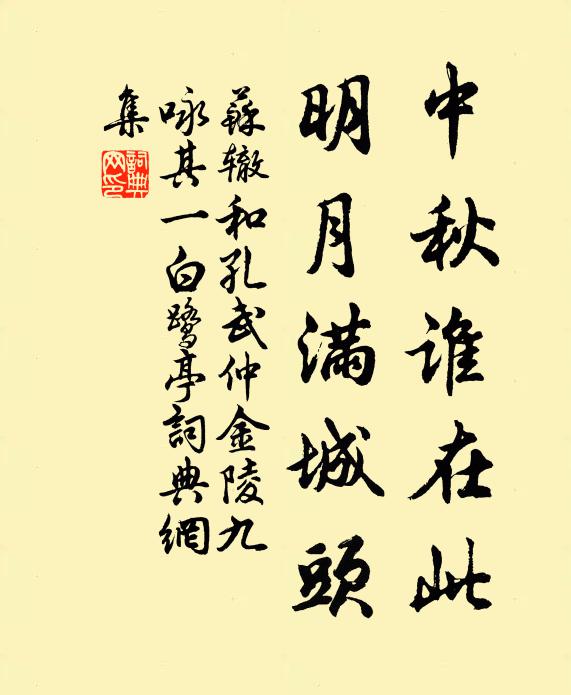 中秋誰在此
明月滿城頭
蘇辙和孔武仲金陵九
咏其一白鹭亭詞典網
集
詞典網印